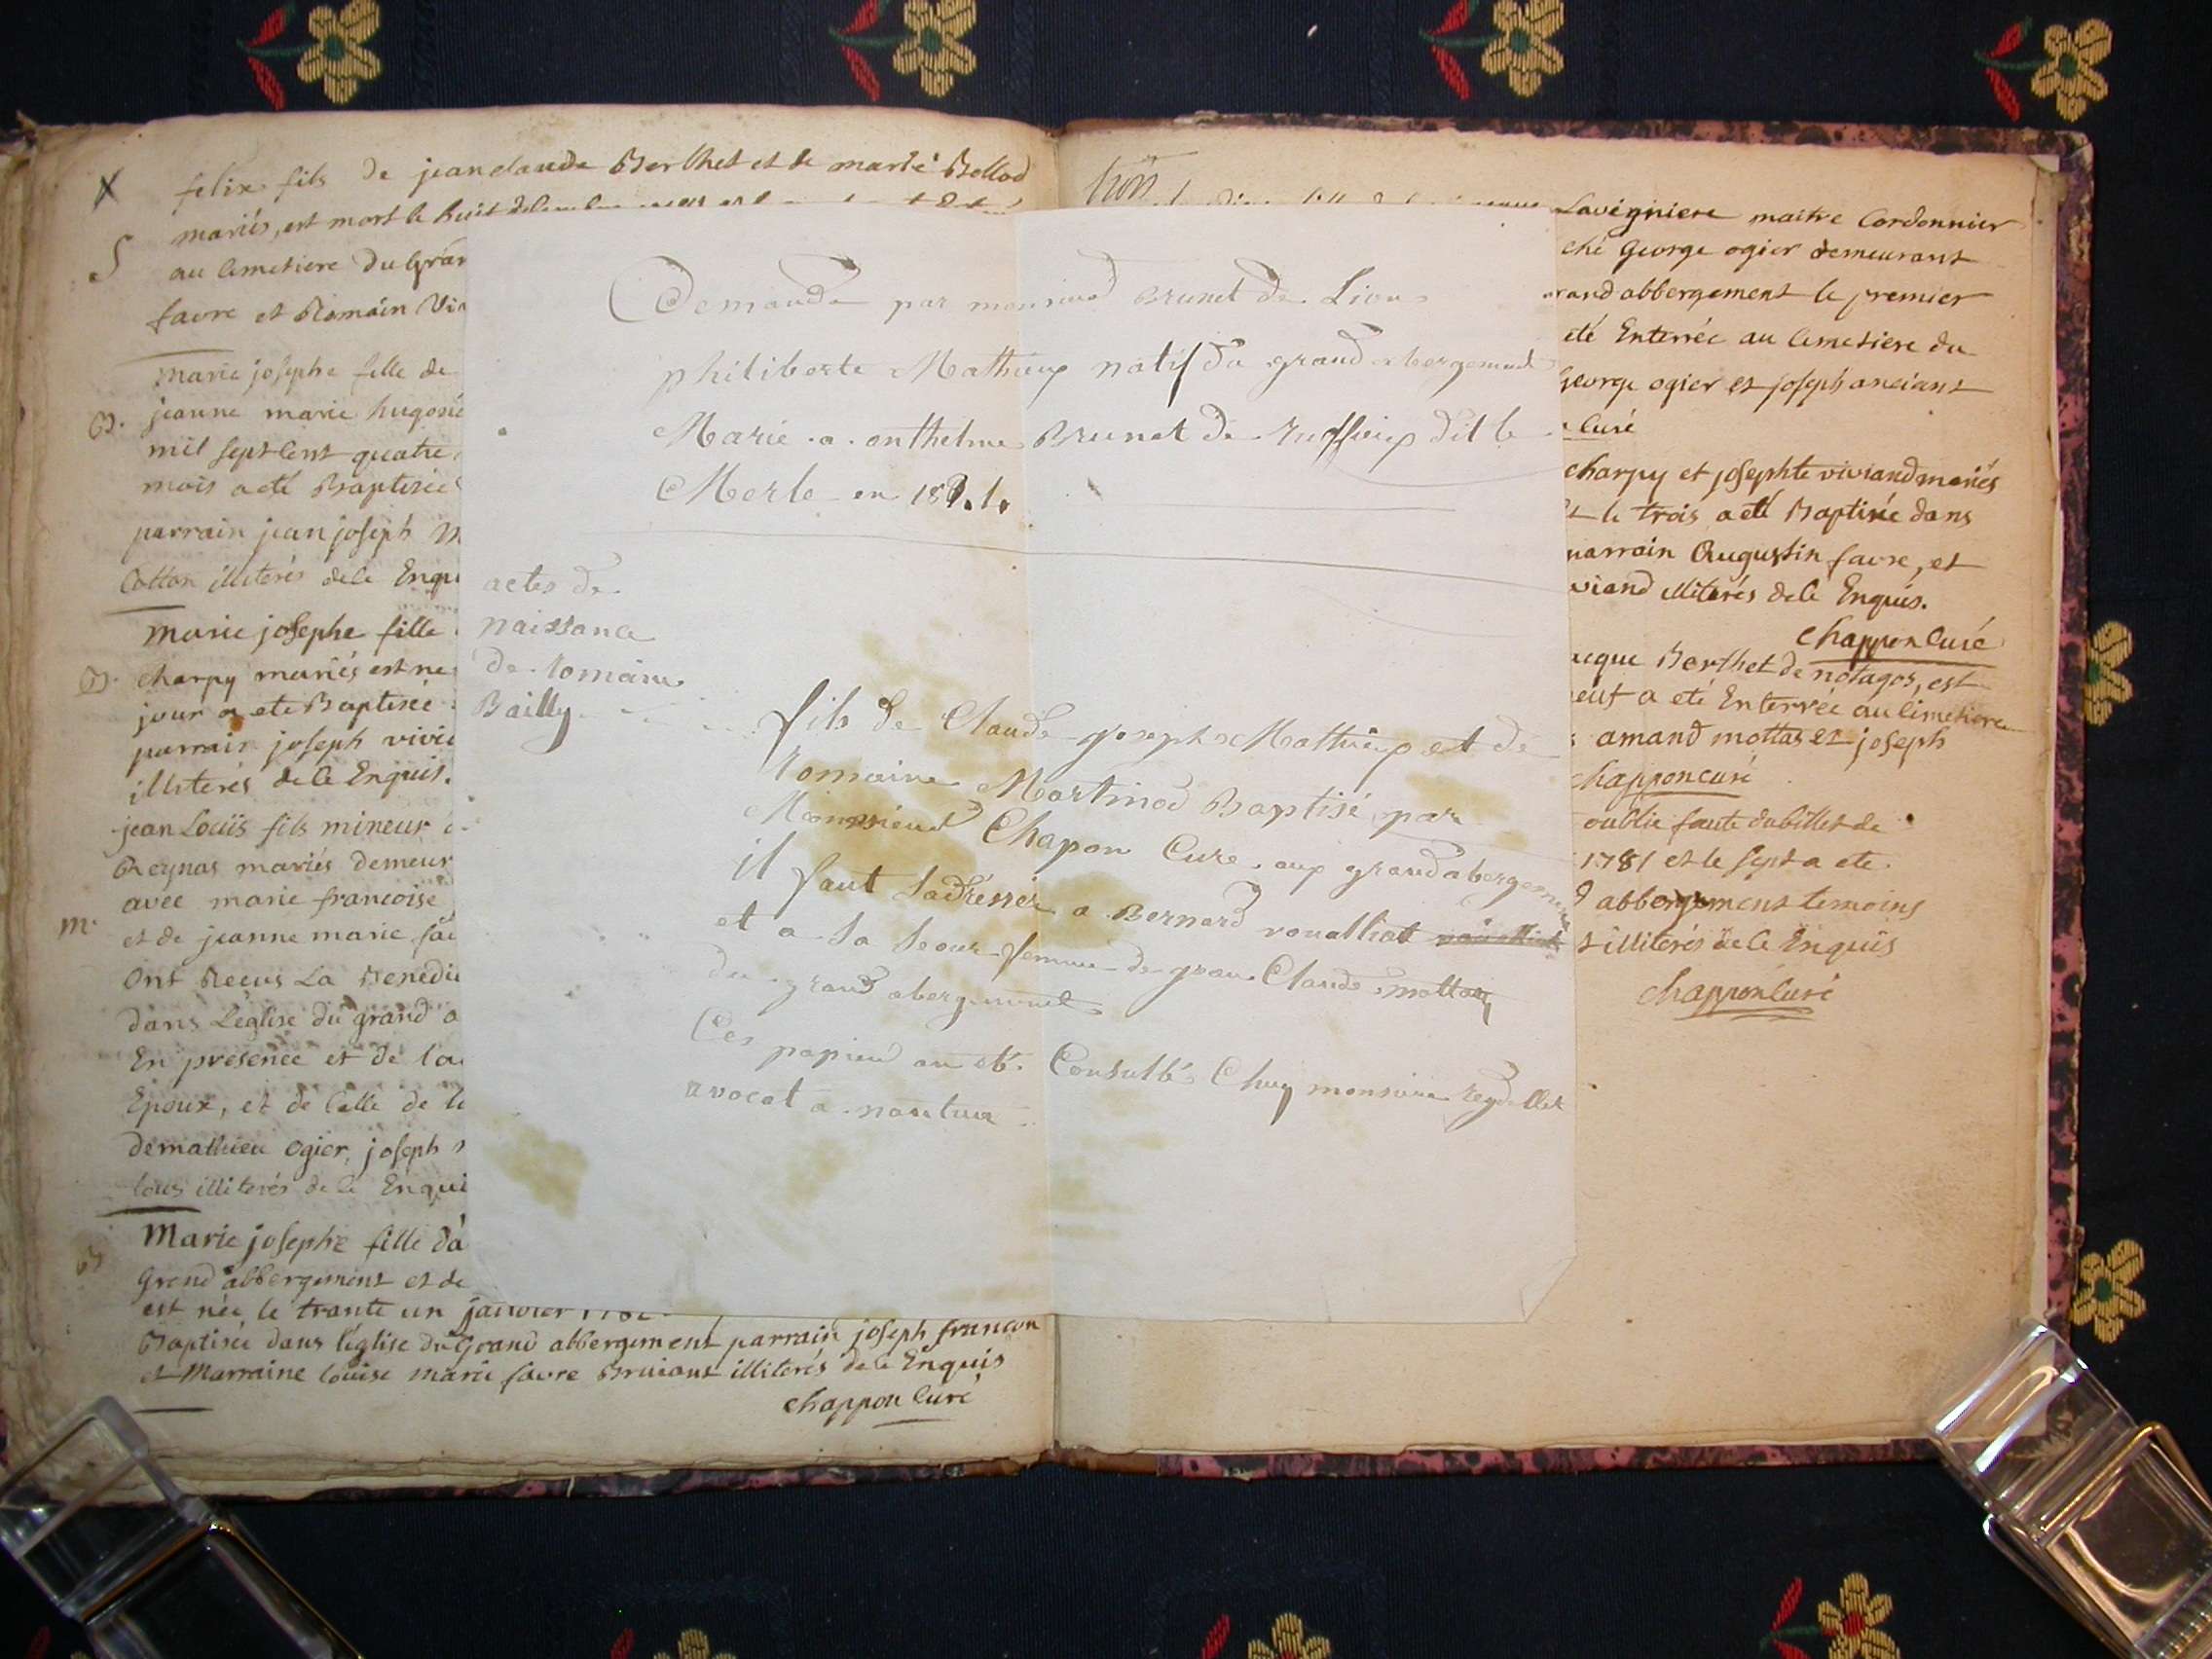 felix fils de jean claude Berthet et de marie Bollod
mariés, est mort le huit
S au cimetiere du Gran
favre et Romain Vi
marie josephe fille de
B. jeanne marie hugon
mil sept cent quatre
mois a eté Baptisée
parrain jean joseph M
Cotton illiterés de ce Enqu
Marie josephe fille
B. Charpy mariés est ne
jour a ete Baptisée
parrain joseph vivi
illiterés de ce Enquis.
jean Louis fils mineur
Reynas mariés demeur
avec marie francoise
m. et de jeanne marie fa
Ont Recus La Benedic
dans L'eglise du grand a
En presence et de l'au
Epoux, et de Celle de
de mathieu Ogier, joseph
tous illiterés de ce Enqui
Marie josephe fille d'a
Grand abbergement et de
est née le trante un janvier
Baptisée dans l'église du Grand abbergement parrain joseph francon
et Marraine louise marie favre Bruiant illiterés de ce Enquis
Chappon Curé
Demande par monsieud Brunet de Lion
philiberte Mathieux natif du grand abergement
Marie a onthelme Brunet de Ruffieux dit le
Merle en 18
actes de
naissance
de Romaine
Bailly
fils de Claude joseph Mathieux et de
Romaine Martinod Baptisé par
Monsieud Chapon Cure aux grand abergement
il faut Sadresser a Bernard roualliat
et a Sa Seour femme de jean Claude mottaz
du grand abergement
Ces papied on eté Consulté Chuy monsieur reydellet
avocat a nantua
Lavigniere maitre Cordonnier
ché George ogier demeurant
grand abbergement le premier
eté Enterrée au Cimetiere du
George ogier et joseph anciant
Curé
Charpy et josephte viviand mariés
et le trois a eté Baptisée dans
marrain Augustin favre, et
viand illiterés de ce Enquis.
Chappon Curé
acque Berthet de notages, est
neuf a eté Enterrée au Cimetiere
amand mottas et joseph
Chappon curé
oublie faute du billet de
1781 et le sept a ete
d abbergement temoins
t illiterés de ce Enquis
Chappon Curé